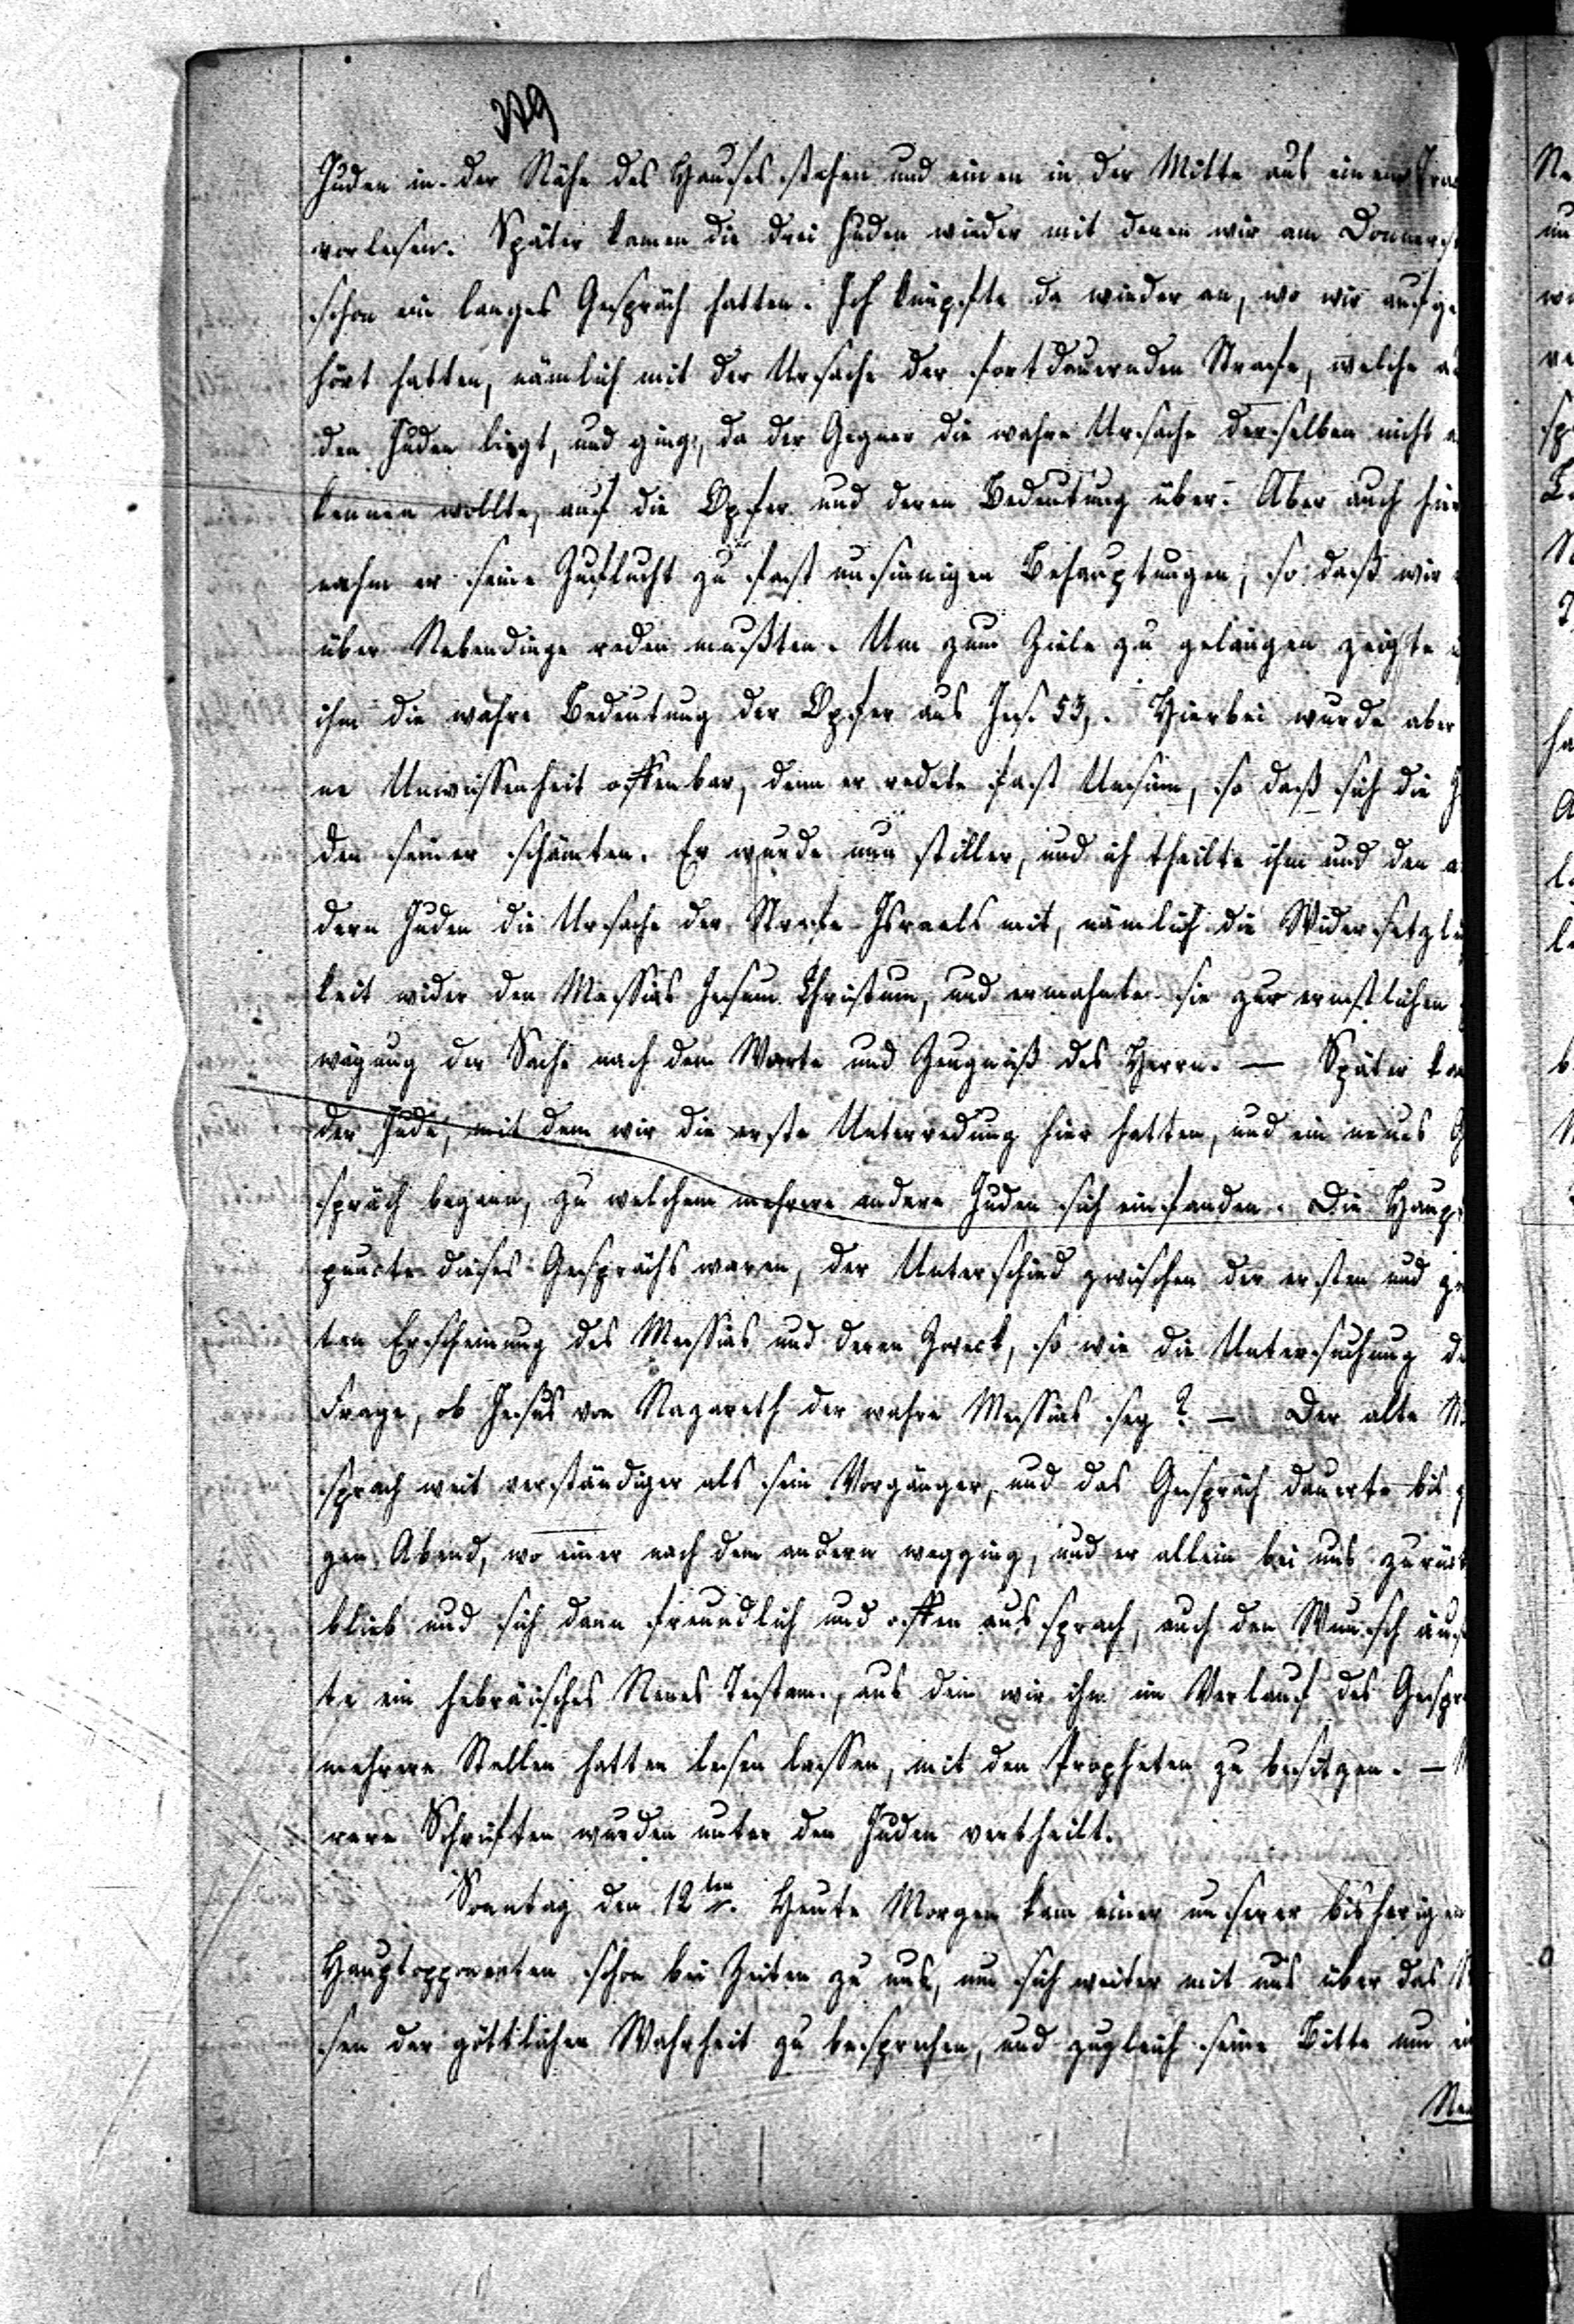 379
Juden in der Nähe des Hauses stehen und einen in der Mitte aus einem Trac
vorlesen. Später kamen die drei Juden wieder mit denen wir am Donnerst
schon ein langes Gespräch hatten. Ich knüpfte da wieder an, wo wir aufge-
hört hatten, nämlich mit der Ursache der fortdauernden Strafe, welche a
den Juden liegt, und ging, da der Gegner die wahre Ursache derselben nicht e
kennen wollte, auf die Opfer und deren Bedeutung über. Aber auch hier
nahm er seine Zuflucht zu fast unsinnigen Behauptungen, so daß wir
über Nebendinge reden mußten. Um zum Ziele zu gelangen zeigte i
ihm die wahre Bedeutung der Opfer aus Jes. 53,. Hierbei wurde aber
ne Unwissenheit offenbar, denn er redete fast Unsinn, so daß sich die J
den seiner schämten. Er wurde nun stiller, und ich theilte ihm und den a
dern Juden die Ursache der Strafe Israels mit, nämlich die Widersetzli
keit wider den Messias Jesum Christum, und ermahnte sie zur ernstlichen
wägung der Sache nach dem Worte und Zeugniß des Herrn. — Später kam
der Jude, mit dem wir die erste Unterredung hier hatten, und ein neues G
spräch begann, zu welchem mehrere andere Juden sich einfanden. Die Haupt
puncte dieses Gesprächs waren, der Unterschied zwischen der ersten und zw
ten Erscheinung des Messias und deren Zweck, so wie die Untersuchung de
Frage, ob Jesus von Nazareth der wahre Messias sey? — Der alte M
sprach weit verständiger als sein Vorgänger, und das Gespräch dauerte bis g
gen Abend, wo einer nach dem andern wegging, und er allein bei uns zurück
blieb und sich dann freundlich und offen aussprach, auch den Wunsch äuß
te ein hebräisches Neues Testam., aus dem wir ihn im Verlauf des Gesprä
mehrere Stellen hatten lesen lassen, mit den Propheten zu besitzen. — M
rere Schriften wurden unter den Juden vertheilt.
Sonntag den 12ten. Heute Morgen kam einer unserer bisherigen
Hauptopponenten schon bei Zeiten zu uns, um sich weiter mit uns über das
sen der göttlichen Wahrheit zu besprechen, und zugleich seine Bitte um ei
Neu